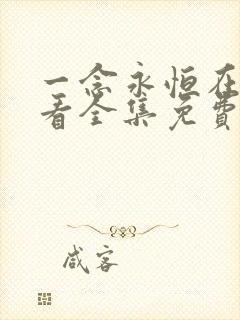 一念永恒在
看全集免费
咸客